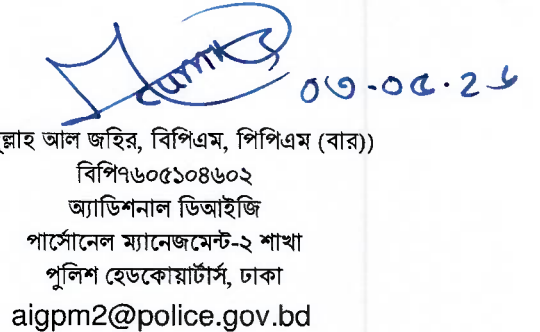 ০৩-০৫.২৬
ল্লাহ আল জহির, বিপিএম, পিপিএম (বার))
বিপি৭৬০৫১০৪৬০২
অ্যাডিশনাল ডিআইজি
পার্সোনেল ম্যানেজমেন্ট-২ শাখা
পুলিশ হেডকোয়ার্টার্স, ঢাকা
aigpm2@police.gov.bd